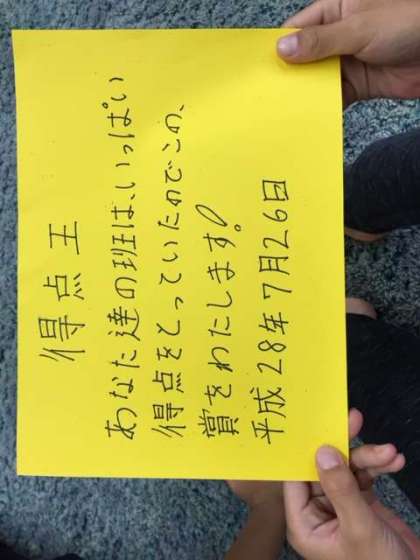 得点王
あなた達の班は、いっぱい
得点をとっていたのでこの、
賞をわたします!
平成28年7月26日